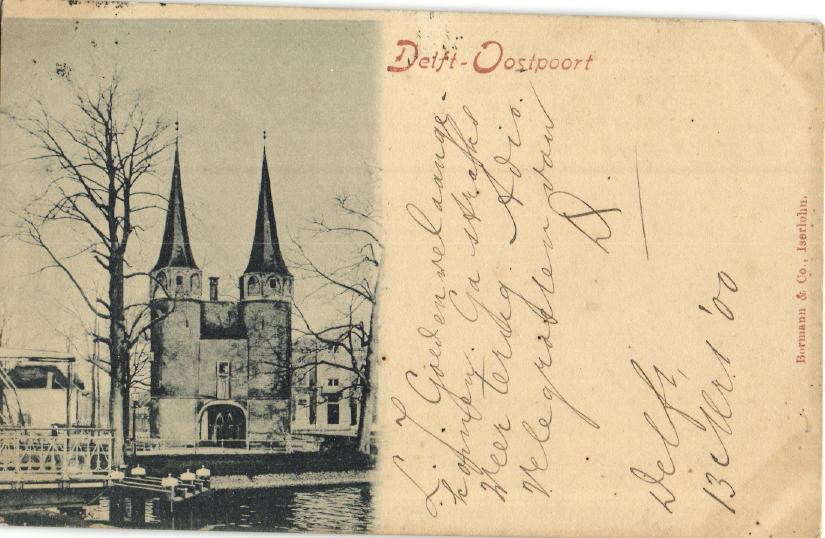 Delft-Oostpoort
L. J. Goed en wel aange-
komen. Ga straks
weer terug. Adio.
Vele groeten van
Delft,
13 Mrt '00
Bormann & Co., Iserlohn.